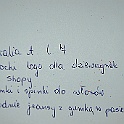 alia t l 4
ochi logo dla dziewczynek
shopy
mki i spinki do włosów
odnie jeansy z gumką w pasie